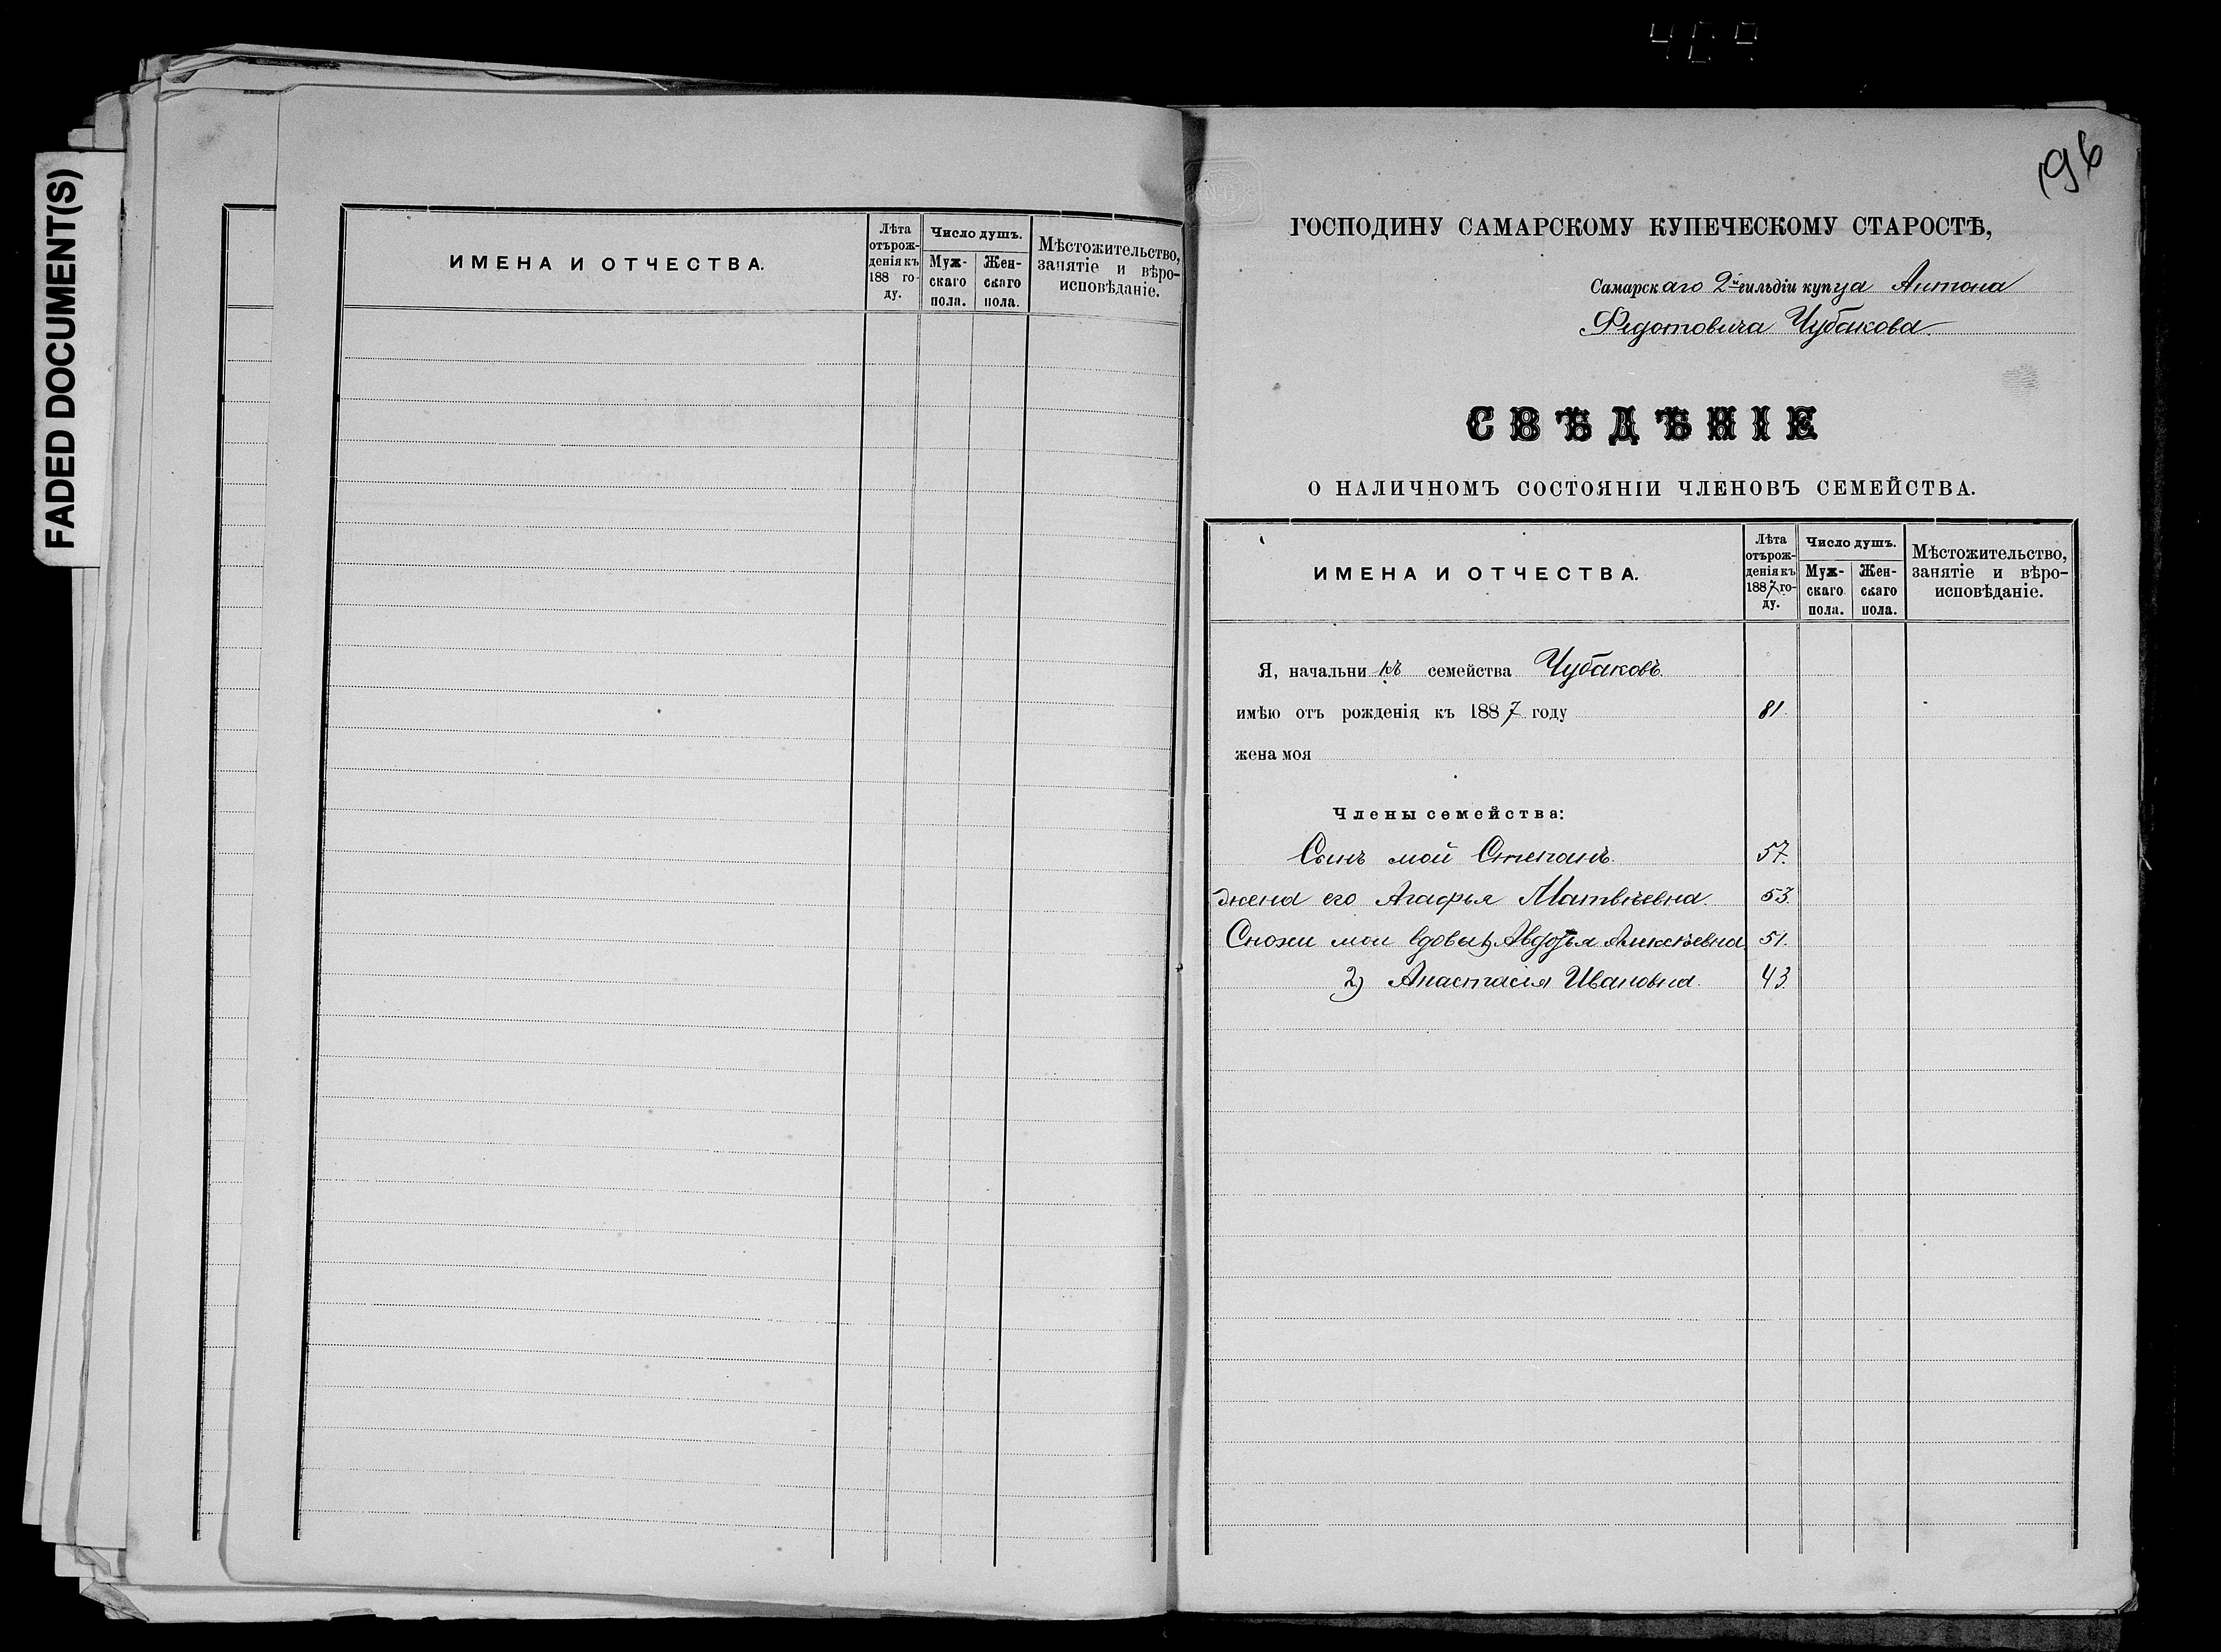 FADED DOCUMENT(S)
ИМЕНА И ОТЧЕСТВА.
Лѣта
отърож-
денія къ
188 го-
ду.
Число душъ.
Муж-
скаго
пола.
Жен-
скаго
пола.
Мѣстожительство,
занятіе и вѣро-
исповѣданіе.
196
ГОСПОДИНУ САМАРСКОМУ КУПЕЧЕСКОМУ СТАРОСТѢ,
Самарскаго 2й гильдіи купца Антона
Федотовича Чубакова
СВѢДѢНІЕ
О НАЛИЧНОМЪ СОСТОЯНІИ ЧЛЕНОВЪ СЕМЕЙСТВА.
ИМЕНА И ОТЧЕСТВА.
Лѣта
отърож-
денія къ
1887 го-
ду.
Число душъ.
Муж-
скаго
пола.
Жен-
скаго
пола.
Мѣстожительство,
занятіе и вѣро-
исповѣданіе.
Я, начальникъ семейства Чубаковъ
имѣю отъ рожденія къ 1887 году 81.
жена моя
Члены семейства:
Сынъ мой Степанъ. 57.
жена его Агафья Матвѣевна. 53.
Снохи мои вдовы 1) Авдотья Алексѣевна 51.
2) Анастасія Ивановна. 43.